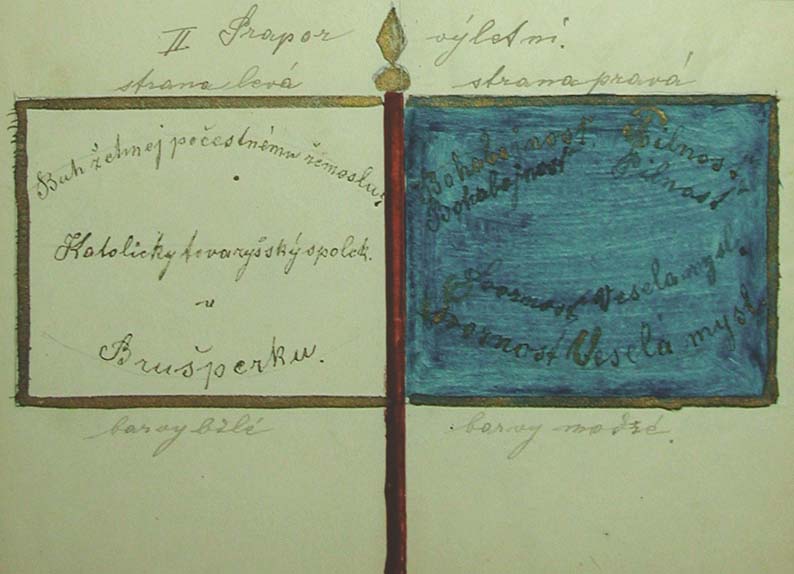 II Prapor výletní.
strana levá
strana pravá
Buh žehnej počestnému řemeslu!
Katolický tovaryšský spolek.
v
Brušperku.
Bohabojnosť. Pilnosť.
Bohabojnost Pilnost
Svornost Veselá mysl.
Svornosť Veselá mysl.
barvy bílé
barvy modré.